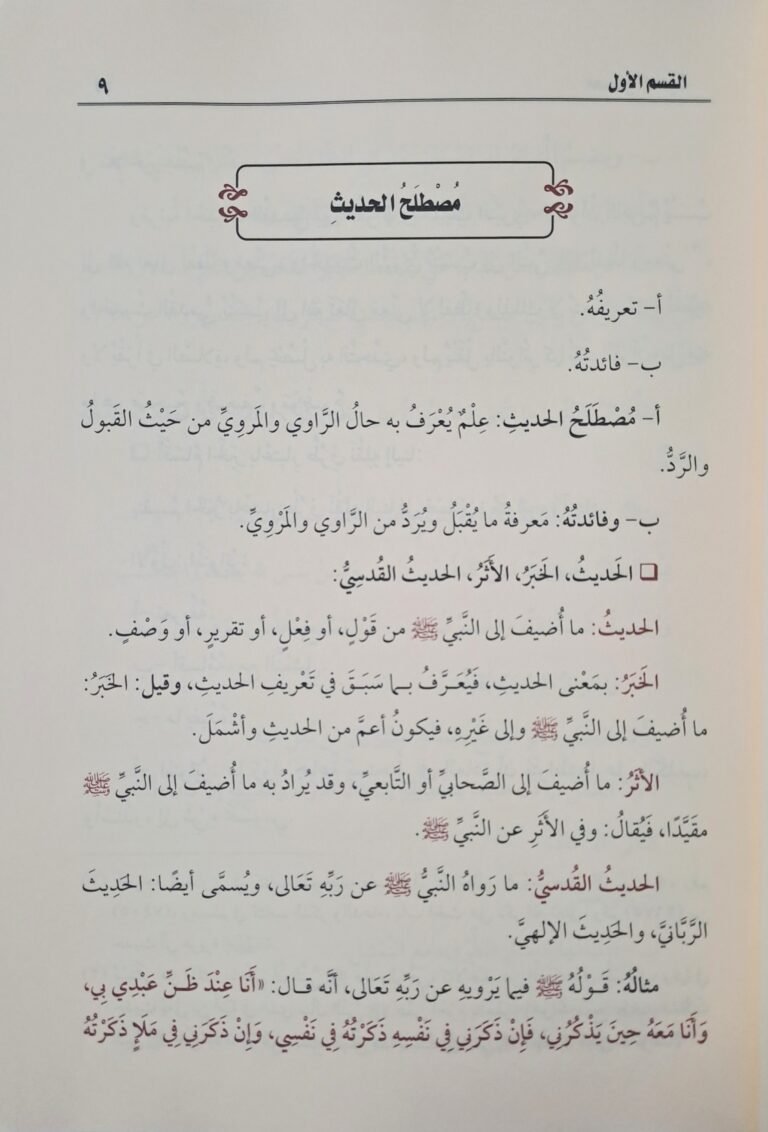 القسم الأول
٩
مُصْطَلَحُ الحديثِ
أ- تعريفُهُ.
ب- فائدتُهُ.
أ- مُصْطَلَحُ الحديثِ: عِلْمٌ يُعْرَفُ به حالُ الرَّاوي والمَروِيِّ من حَيْثُ القَبولُ
والرَّدُّ.
ب- وفائدتُهُ: مَعرفةُ ما يُقْبَلُ ويُرَدُّ من الرَّاوي والمَرْوِيِّ.
❑ الحَديثُ، الخَبَرُ، الأَثَرُ، الحديثُ القُدسِيُّ:
الحديثُ: ما أُضيفَ إلى النَّبيِّ ﷺ من قَوْلٍ، أو فِعْلٍ، أو تقريرٍ، أو وَصْفٍ.
الخَبَرُ: بمَعْنى الحديثِ، فَيُعَرَّفُ بـما سَبَقَ في تَعْريفِ الحديثِ، وقيل: الخَبَرُ:
ما أُضيفَ إلى النَّبيِّ ﷺ وإلى غَيْرِهِ، فيكونُ أعمَّ من الحديثِ وأشْمَلَ.
الأثَرُ: ما أُضيفَ إلى الصَّحابيِّ أو التَّابعيِّ، وقد يُرادُ به ما أُضيفَ إلى النَّبيِّ ﷺ
مقيَّدًا، فَيُقالُ: وفي الأَثَرِ عن النَّبيِّ ﷺ.
الحديثُ القُدسيُّ: ما رَواهُ النَّبيُّ ﷺ عن رَبِّهِ تَعَالى، ويُسمَّى أيضًا: الحَدِيثَ
الرَّبَّانيَّ، والحَدِيثَ الإلهيَّ.
مثالُهُ: قَـوْلُهُ ﷺ فيما يَرْويهِ عن رَبِّهِ تَعَالى، أنَّه قـال: «أَنَا عِنْدَ ظَـنِّ عَبْدِي بِي،
وَأَنَا مَعَهُ حِينَ يَذْكُرُنِي، فَإِنْ ذَكَرَنِي فِي نَفْسِهِ ذَكَرْتُهُ فِي نَفْسِي، وَإِنْ ذَكَرَنِي فِي مَلَإٍ ذَكَرْتُهُ